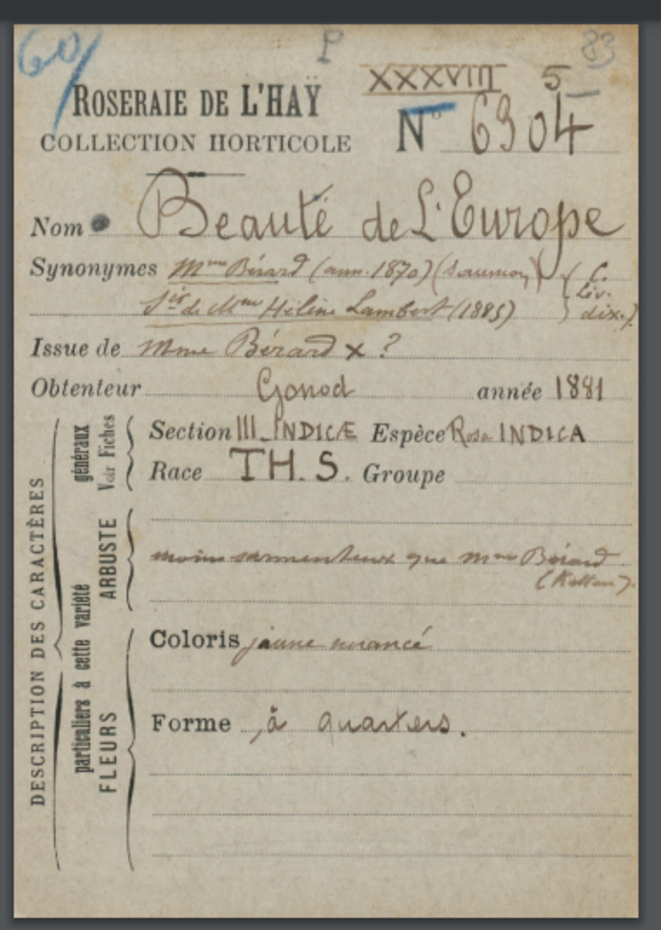 60/ P 83
XXXVIII 5
ROSERAIE DE L'HAŸ
COLLECTION HORTICOLE
N° 6904
Nom Beauté de L'Europe
Synonymes Mme Bérard (ann. 1870) (saumon) (C.
Sis de Mme Hélène Lambert (1885) Liv. dix.)
Issue de Mme Bérard x ?
Obtenteur Gonod année 1881
DESCRIPTION DES CARACTÈRES
généraux
Voir Fiches
Section III_INDICÆ Espèce Rosa INDICA
Race TH. S. Groupe
particuliers à cette variété
ARBUSTE
moins sarmenteux que Mme Bérard
(Ketten).
FLEURS
Coloris jaune nuancé
Forme à quarters.